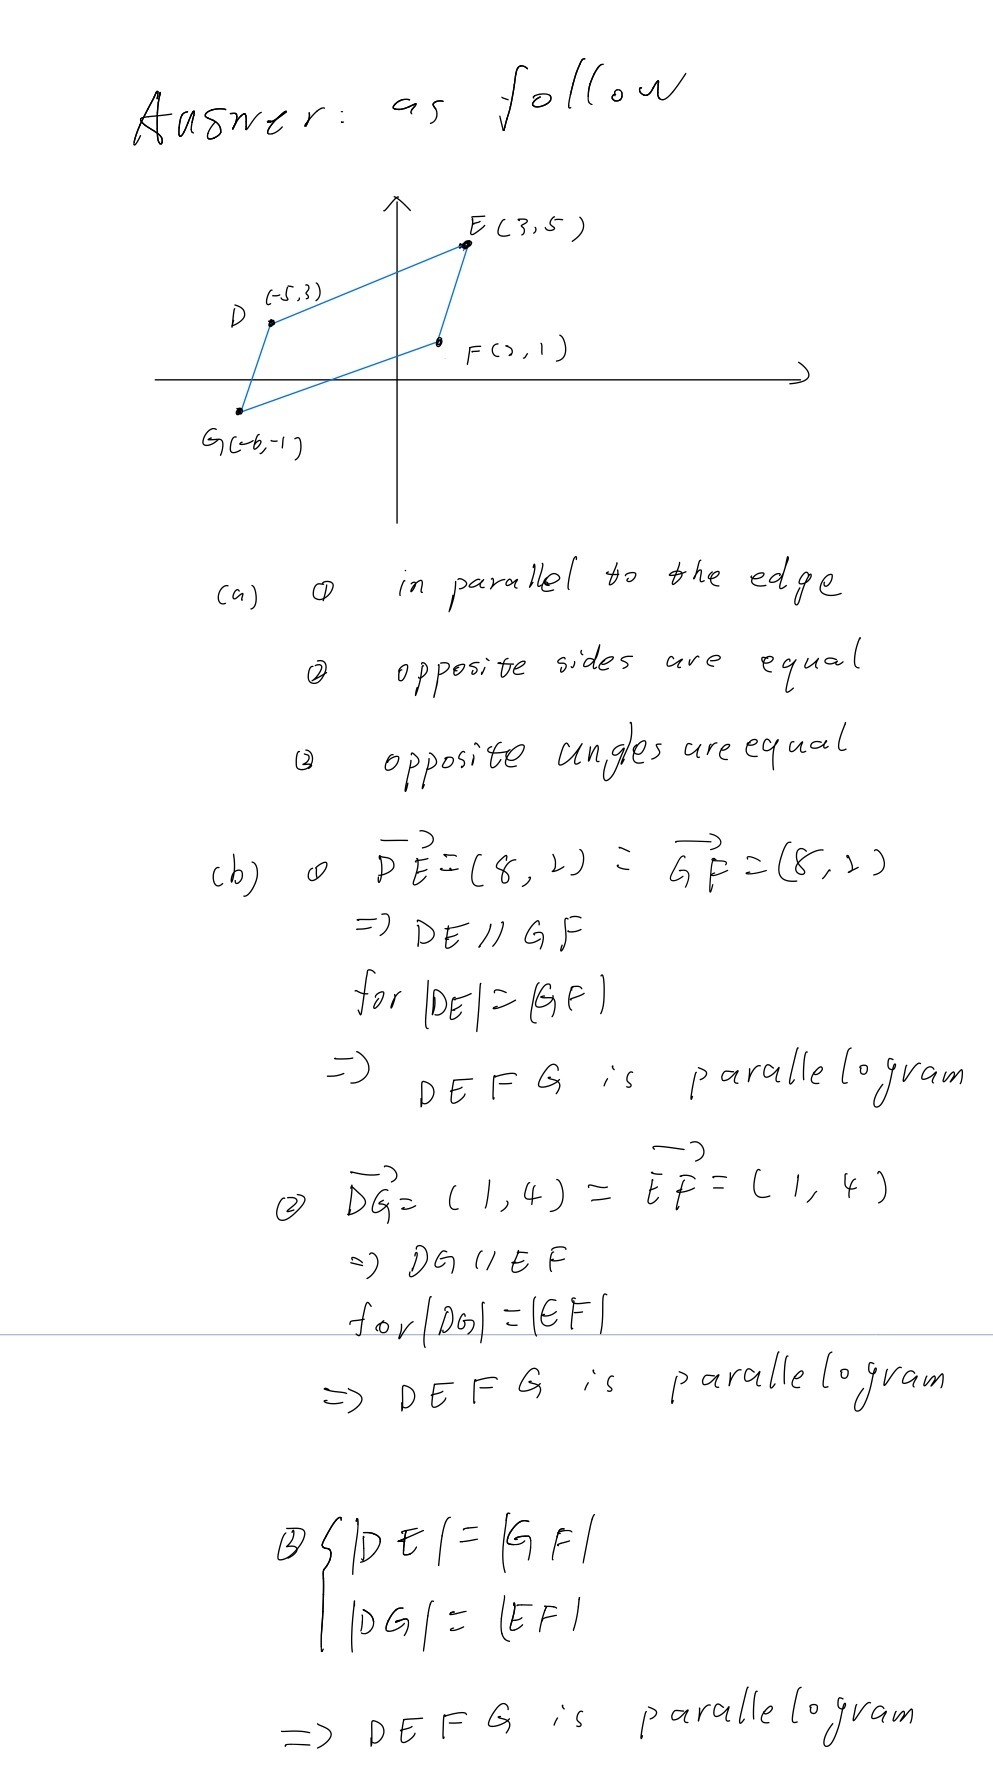 Answer: as follow
E(3,5)
D (-5,3)
F(2,1)
G(-6,-1)
(a) ① in parallel to the edge
② opposite sides are equal
③ opposite angles are equal
(b) ① DE=(8,2)=GF=(8,2)
=> DE//GF
for |DE|=|GF|
=> DEFG is parallelogram
② DG=(1,4)=EF=(1,4)
=> DG//EF
for|DG|=|EF|
=> DEFG is parallelogram
③ {|DE|=|GF|
|DG|=|EF|
=> DEFG is parallelogram